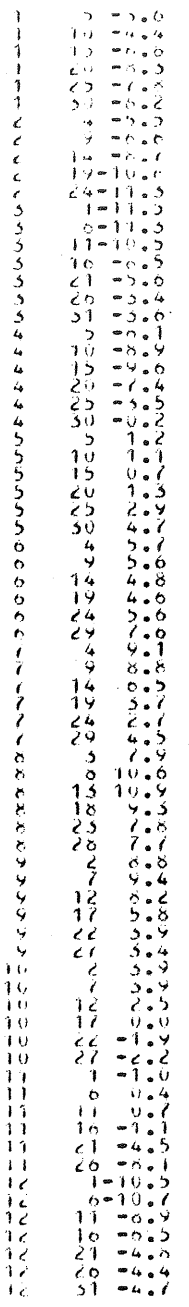 1 5 -5.6
1 10 -4.4
1 15
1 20 -8.3
1 25 -7.8
1 30 -8.2
2 4
2 9
2 14 -8.7
2 19-10.7
2 24-11.3
3 1-11.5
3 6-11.3
3 11-10.5
3 16 -6.5
3 21 -5.6
3 26 -3.4
3 31 -3.6
4 5 -6.1
4 10 -8.9
4 15 -9.6
4 20 -7.4
4 25 -3.5
4 30 -0.2
5 5 1.2
5 10 1.1
5 15 0.7
5 20 1.3
5 25 2.9
5 30 4.7
6 4 5.7
6 9 5.6
6 14 4.8
6 19 4.6
6 24 5.6
6 29 7.6
7 4 9.1
7 9 8.8
7 14 6.5
7 19 3.7
7 24 2.7
7 29 4.5
8 3 7.9
8 8 10.6
8 13 10.9
8 18 9.3
8 23 7.8
8 28 7.7
9 2 8.8
9 7 9.4
9 12 8.2
9 17 5.8
9 22 3.9
9 27 3.4
10 2 3.9
10 7 3.9
10 12 2.5
10 17 0.0
10 22 -1.9
10 27 -2.2
11 1 -1.0
11 6 0.4
11 11 0.7
11 16 -1.1
11 21 -4.5
11 26 -8.1
12 1-10.5
12 6-10.7
12 11 -8.9
12 16 -6.5
12 21 -4.8
12 26 -4.4
12 31 -4.7